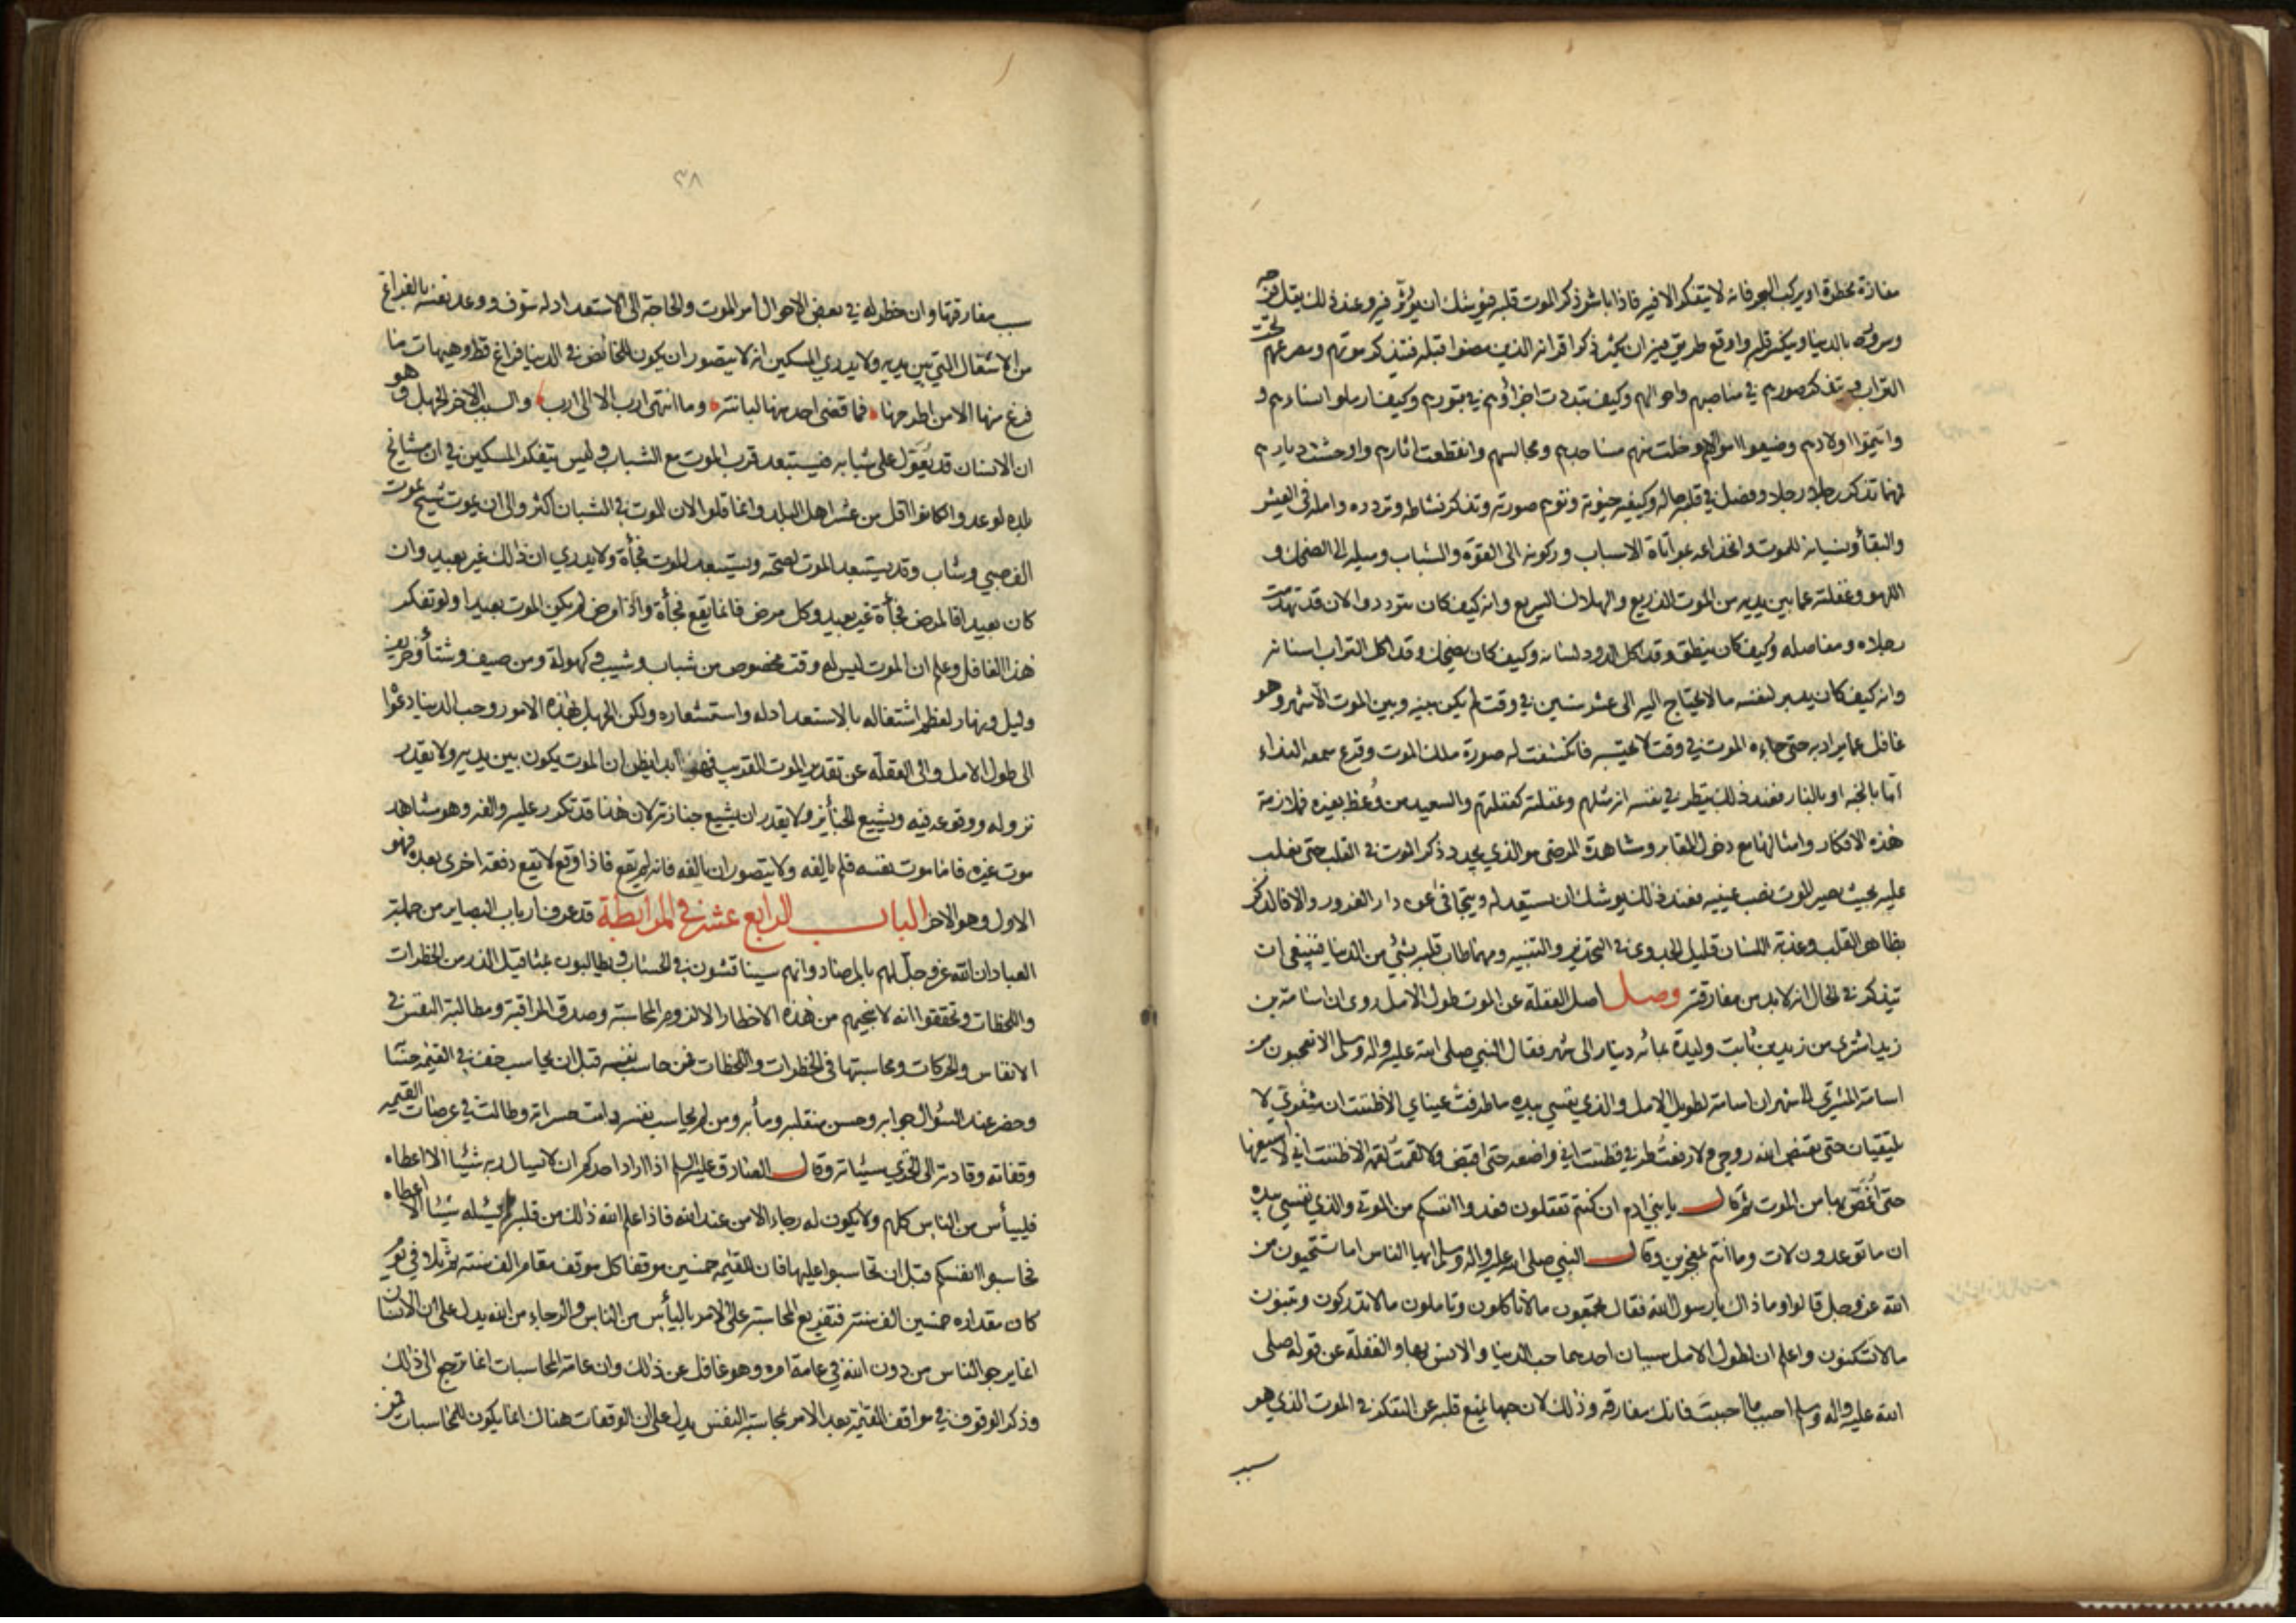 مفازة مخطرة او يركب البحر فانه لا يتفكر الا فيه فاذا باشر ذكر الموت قلبه فيوشك ان يؤثر فيه وعند ذلك يقل فرحه
وسروره بالدنيا وينكسر قلبه واوقع طريق فيه ان يكثر ذكر اقرانه الذين مضوا قبله فيتذكر موتهم ومصرعهم تحت
التراب ويتذكر صورهم في مناصبهم واحوالهم وكيف تبددت اجزاؤهم في قبورهم وكيف ارملوا نساءهم و
وايتموا اولادهم وضيعوا اموالهم وخلت منهم مساجدهم ومجالسهم وانقطعت اثارهم واوحشت ديارهم
فمهما تذكر رجلا رجلا وفصل في قلبه حاله وكيفية حيوته وتوهم صورته وتذكر نشاطه وتردده وامله في العيش
والبقأ ونسيانه للموت وانخداعه بمواتاة الاسباب وركونه الى القوة والشباب وميله الى الضحك و
اللهو وغفلته عما بين يديه من الموت الذريع والهلاك السريع وانه كيف كان يتردد والان قد تهدمت
رجلاه ومفاصله وكيف كان ينطق وقد اكل الدود لسانه وكيف كان يضحك وقد اكل التراب اسنانه
وانه كيف كان يدبر لنفسه ما لا يحتاج اليه الى عشر سنين في وقت لم يكن بينه وبين الموت الا شهر وهو
غافل عما يراد به حتى جاءه الموت في وقت لا يحتسبه فانكشفت له صورة ملك الموت وقرع سمعه النداء
اما بالجنة او بالنار فعند ذلك ينظر في نفسه انه مثلهم وغفلته كغفلتهم والسعيد من وعظ بغيره فملازمة
هذه الافكار وامثالها مع دخول المقابر ومشاهدة المرضى هو الذي يجدد ذكر الموت في القلب حتى يغلب
عليه بحيث يصير الموت نصب عينيه فعند ذلك يوشك ان يستعد له ويتجافى عن دار الغرور والا فالذكر
بظاهر القلب وعذبة اللسان قليل الجدوى في التحذير والتنبيه ومهما طاب قلبه بشئ من الدنيا فينبغي ان
يتذكر في الحال انه لابد من مفارقته وصل اصل الغفلة عن الموت طول الامل روى ان اسامة بن
زيد اشترى من زيد بن ثابت وليدة بمائه دينار الى شهر فقال النبي صلى الله عليه واله وسلم الا تعجبون من
اسامة المشترى الى شهر ان اسامة لطويل الامل والذي نفسي بيده ما طرفت عيناي الا ظننت ان شفري لا
يلتقيان حتى يقبض الله روحي ولا رفعت طرفي فظننت اني واضعه حتى اقبض ولا لقمت لقمه الا ظننت اني لا اسيغها
حتى اغص بها من الموت ثم قال يا بني ادم ان كنتم تعقلون فعدوا انفسكم من الموتى والذي نفسي بيده
ان ما توعدون لات وما انتم بمعجزين وقال النبي صلى الله عليه واله وسلم ايها الناس اما تستحيون من
الله عز وجل قالوا وما ذاك يا رسول الله فقال تجمعون ما لا تاكلون وتاملون ما لا تدركون وتبنون
ما لا تسكنون واعلم ان لطول الامل سببان احدهما حب الدنيا والانس بها والغفلة عن قوله صلى
الله عليه واله وسلم احبب ما احببت فانك مفارقه وذلك لان حبها يمنع قلبه عن التفكر في الموت الذي هو
سبب
٣٨
سبب مفارقتها وان خطر له في بعض الاحوال امر الموت والحاجة الى الاستعداد له سوف ووعد نفسه بالفراغ
من الاشغال التي بين يديه ولا يدري المسكين انه لا يتصور ان يكون للخائض في الدنيا فراغ قط وهيهات ما
فرغ منها الا من اطرحها فما قضى احد منها لبانته وما انتهى ارب الا الى ارب والسبب الاخر الجهل وهو
ان الانسان قد يعول على شبابه فيستبعد قرب الموت مع الشباب وليس يتفكر المسكين في ان مشايخ
بلده لو عدوا لكانوا اقل من عشر اهل البلد وانما قلوا لان الموت في الشبان اكثر والى ان يموت شيخ يموت
الف صبي وشاب وقد يستبعد الموت لصحته ويستبعد الموت فجأة ولا يدري ان ذلك غير بعيد وان
كان بعيدا فالمرض فجأة غير بعيد وكل مرض فانما يقع فجأة واذا مرض لم يكن الموت بعيدا ولو تفكر
هذا الغافل وعلم ان الموت ليس له وقت مخصوص من شباب وشيب وكهولة ومن صيف وشتأ وخريف
وليل ونهار لعظم اشتغاله بالاستعداد له واستشعاره ولكن الجهل بهذه الامور وحب الدنيا دعوا
الى طول الامل والى الغفلة عن تقدير الموت القريب فهو ابدا يظن ان الموت يكون بين يديه ولا يقدر
نزوله ووقوعه فيه ويشيع الجنأيز ولا يقدر ان يشيع جنازته لان هذا قد تكرر عليه والفه وهو مشاهدة
موت غيره فاما موت نفسه فلم يالفه ولا يتصور ان يالفه فانه لم يقع فاذا وقع لا يقع دفعة اخرى بعده فهو
الاول وهو الاخر الباب الرابع عشر في المرابطة قد عرف ارباب البصاير من جملة
العباد ان الله عز وجل لهم بالمرصاد وانهم سيناقشون في الحساب ويطالبون بمثاقيل الذر من الخطرات
واللحظات وتحققوا انه لا ينجيهم من هذه الاخطار الا لزوم المحاسبة وصدق المراقبة ومطالبة النفس في
الانفاس والحركات ومحاسبتها في الخطرات واللحظات فمن حاسب نفسه قبل ان يحاسب خف في القيمة حسابه
وحضر عند السؤال جوابه وحسن منقلبه ومأبه ومن لم يحاسب نفسه دامت حسراته وطالت في عرصات القيمة
وقفاته وقادته الى الخزي سيئاته وقال الصادق عليه السلم اذا اراد احدكم ان لا يسال ربه شيئا الا اعطاه
فلييأس من الناس كلهم ولا يكون له رجاء الا من عند الله فاذا علم الله ذلك من قلبه لم يسئله شيئا الا اعطاه
فحاسبوا انفسكم قبل ان تحاسبوا عليها فان للقيمة خمسين موقفا كل موقف مقام الف سنة ثم تلا في يوم
كان مقداره خمسين الف سنة فتفريع المحاسبة على الامر بالياس من الناس والرجاء من الله يدل على ان الانسان
انما يرجو الناس من دون الله في عامة امره وهو غافل عن ذلك وان عامة المحاسبات انما ترجع الى ذلك
وذكر الوقوف في مواقف القيمة بعد الامر بمحاسبة النفس يدل على ان الوقفات هناك انما يكون للمحاسبات فمن